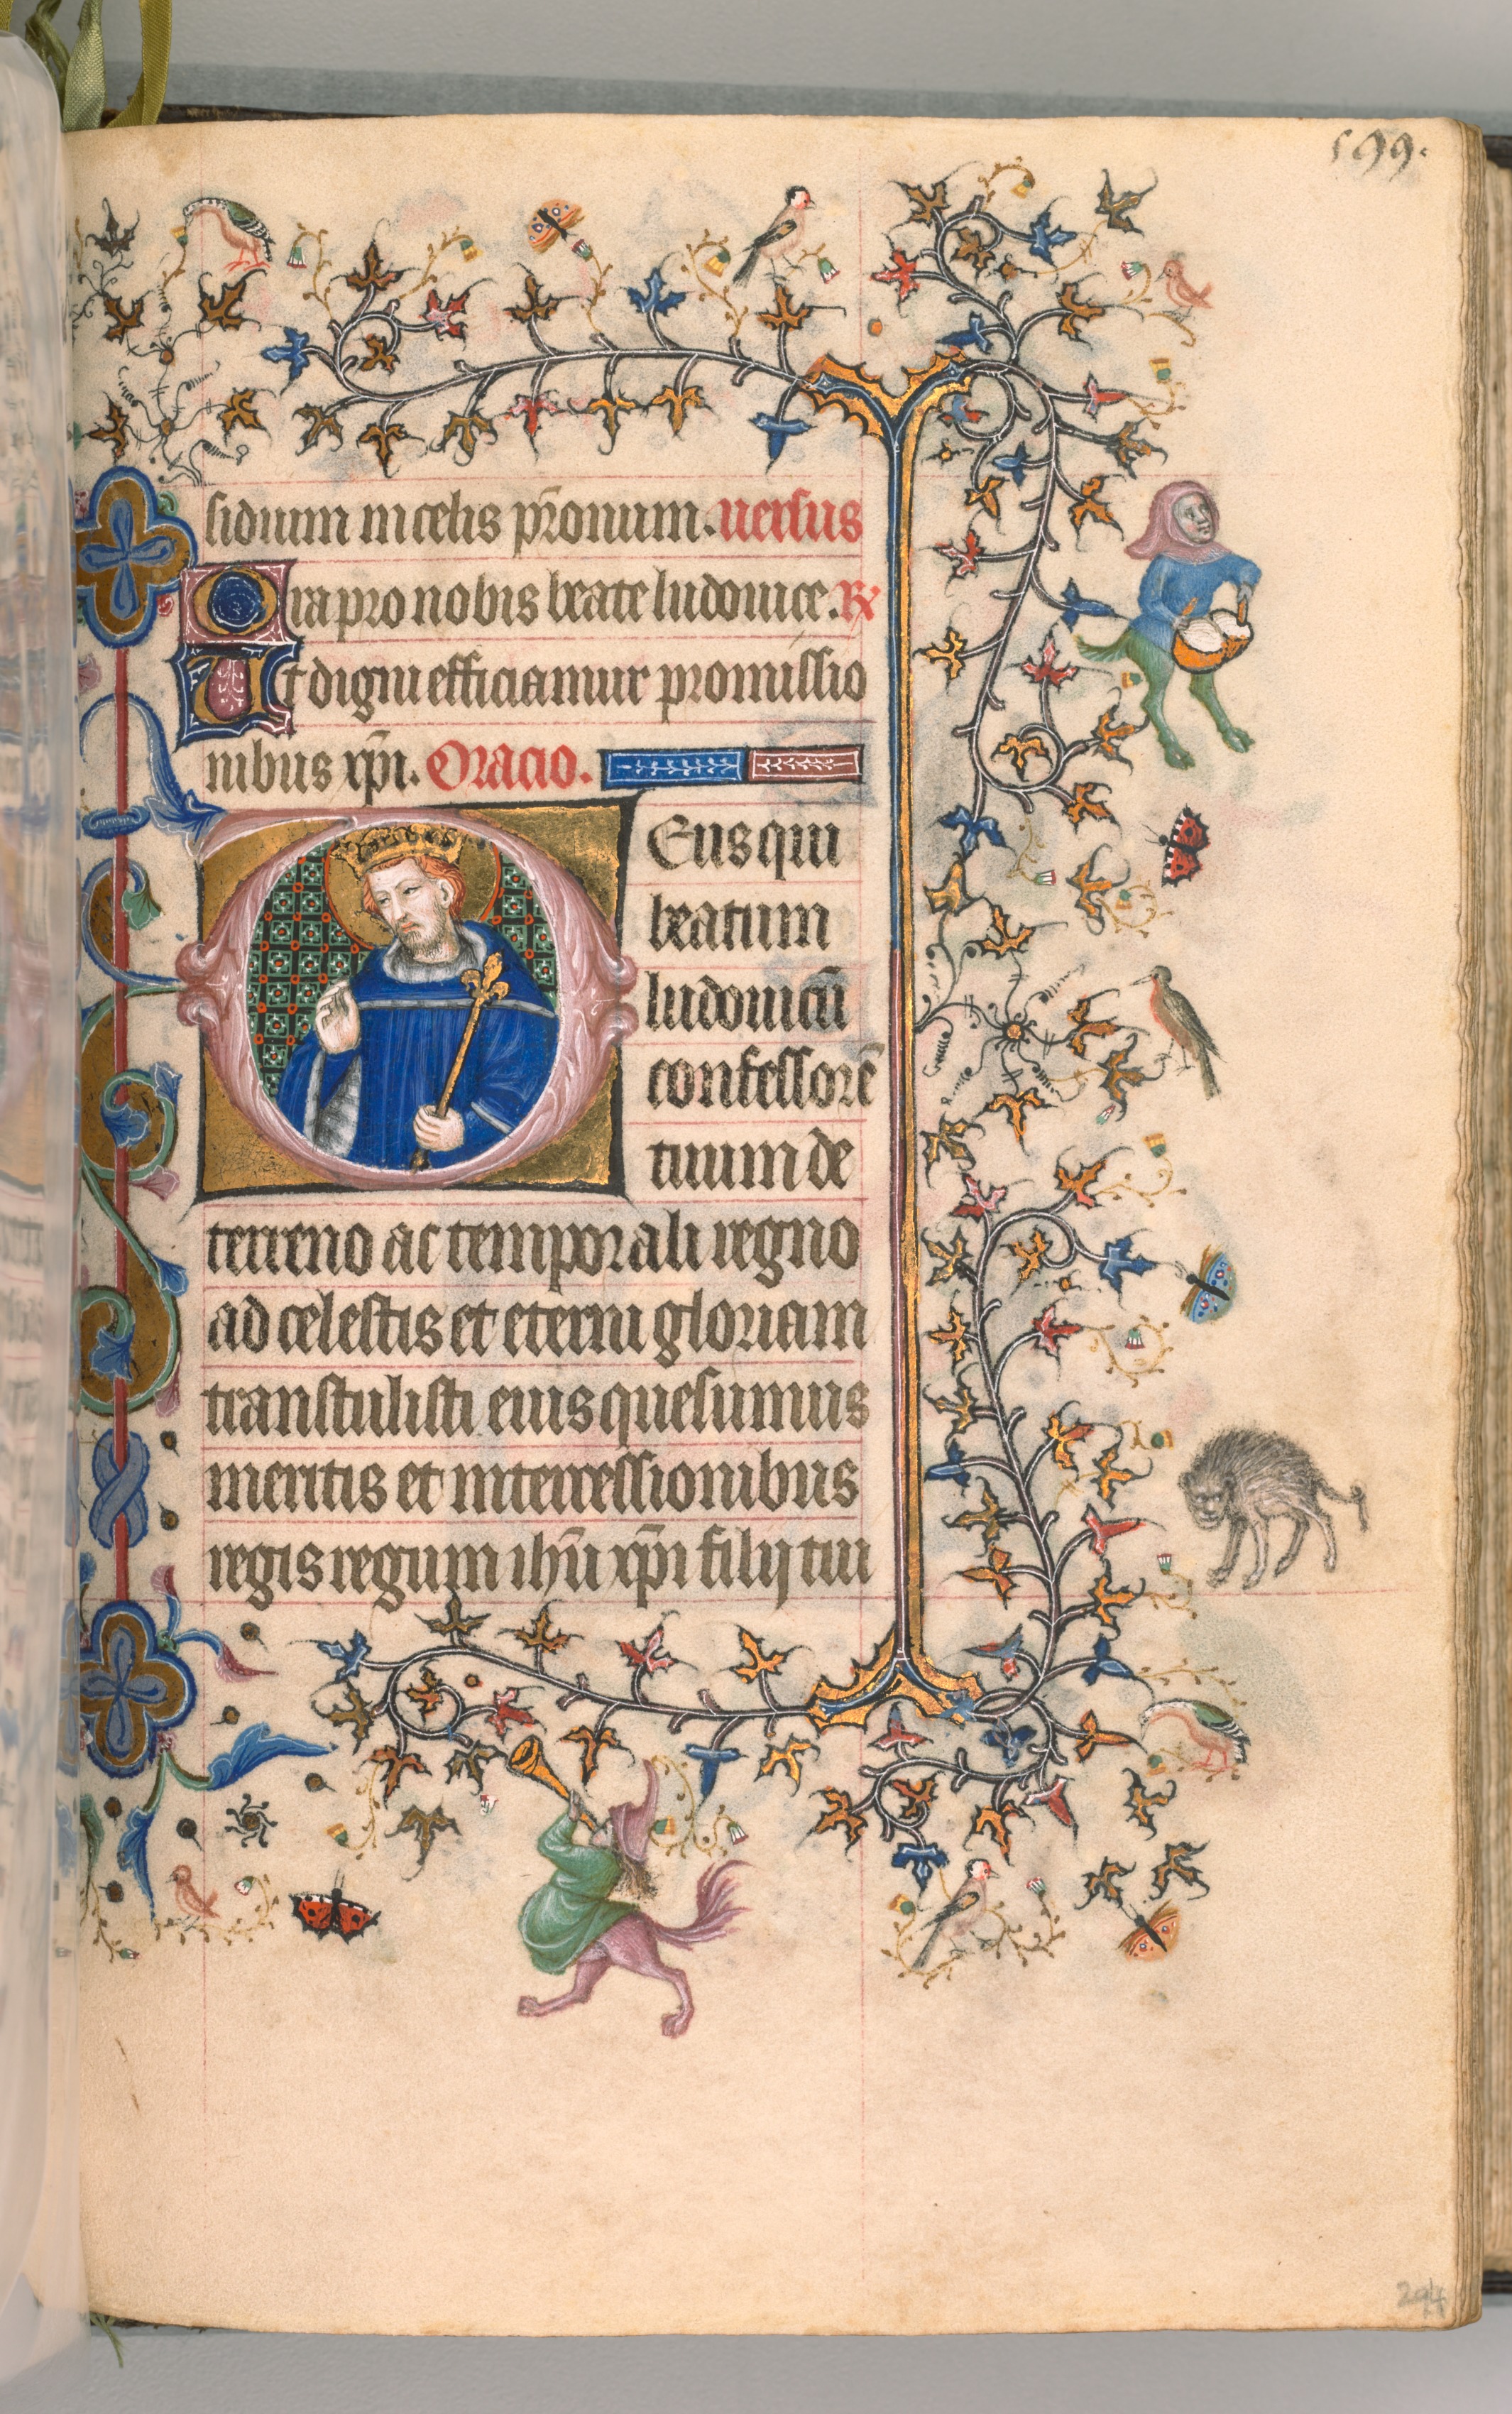 599.
sidium in celis p̄ronum. uersus
Ora pro nobis beate ludouice. R̷
Ut digni efficiamur promissio
nibus xp̄i. Oracio.
Deus qui
beatum
ludouicū
confessorē
tuum de
terreno ac temporali regno
ad celestis et eterni gloriam
transtulisti eius quesumus
meritis et intercessionibus
regis regum ihū xp̄i filij tui
294